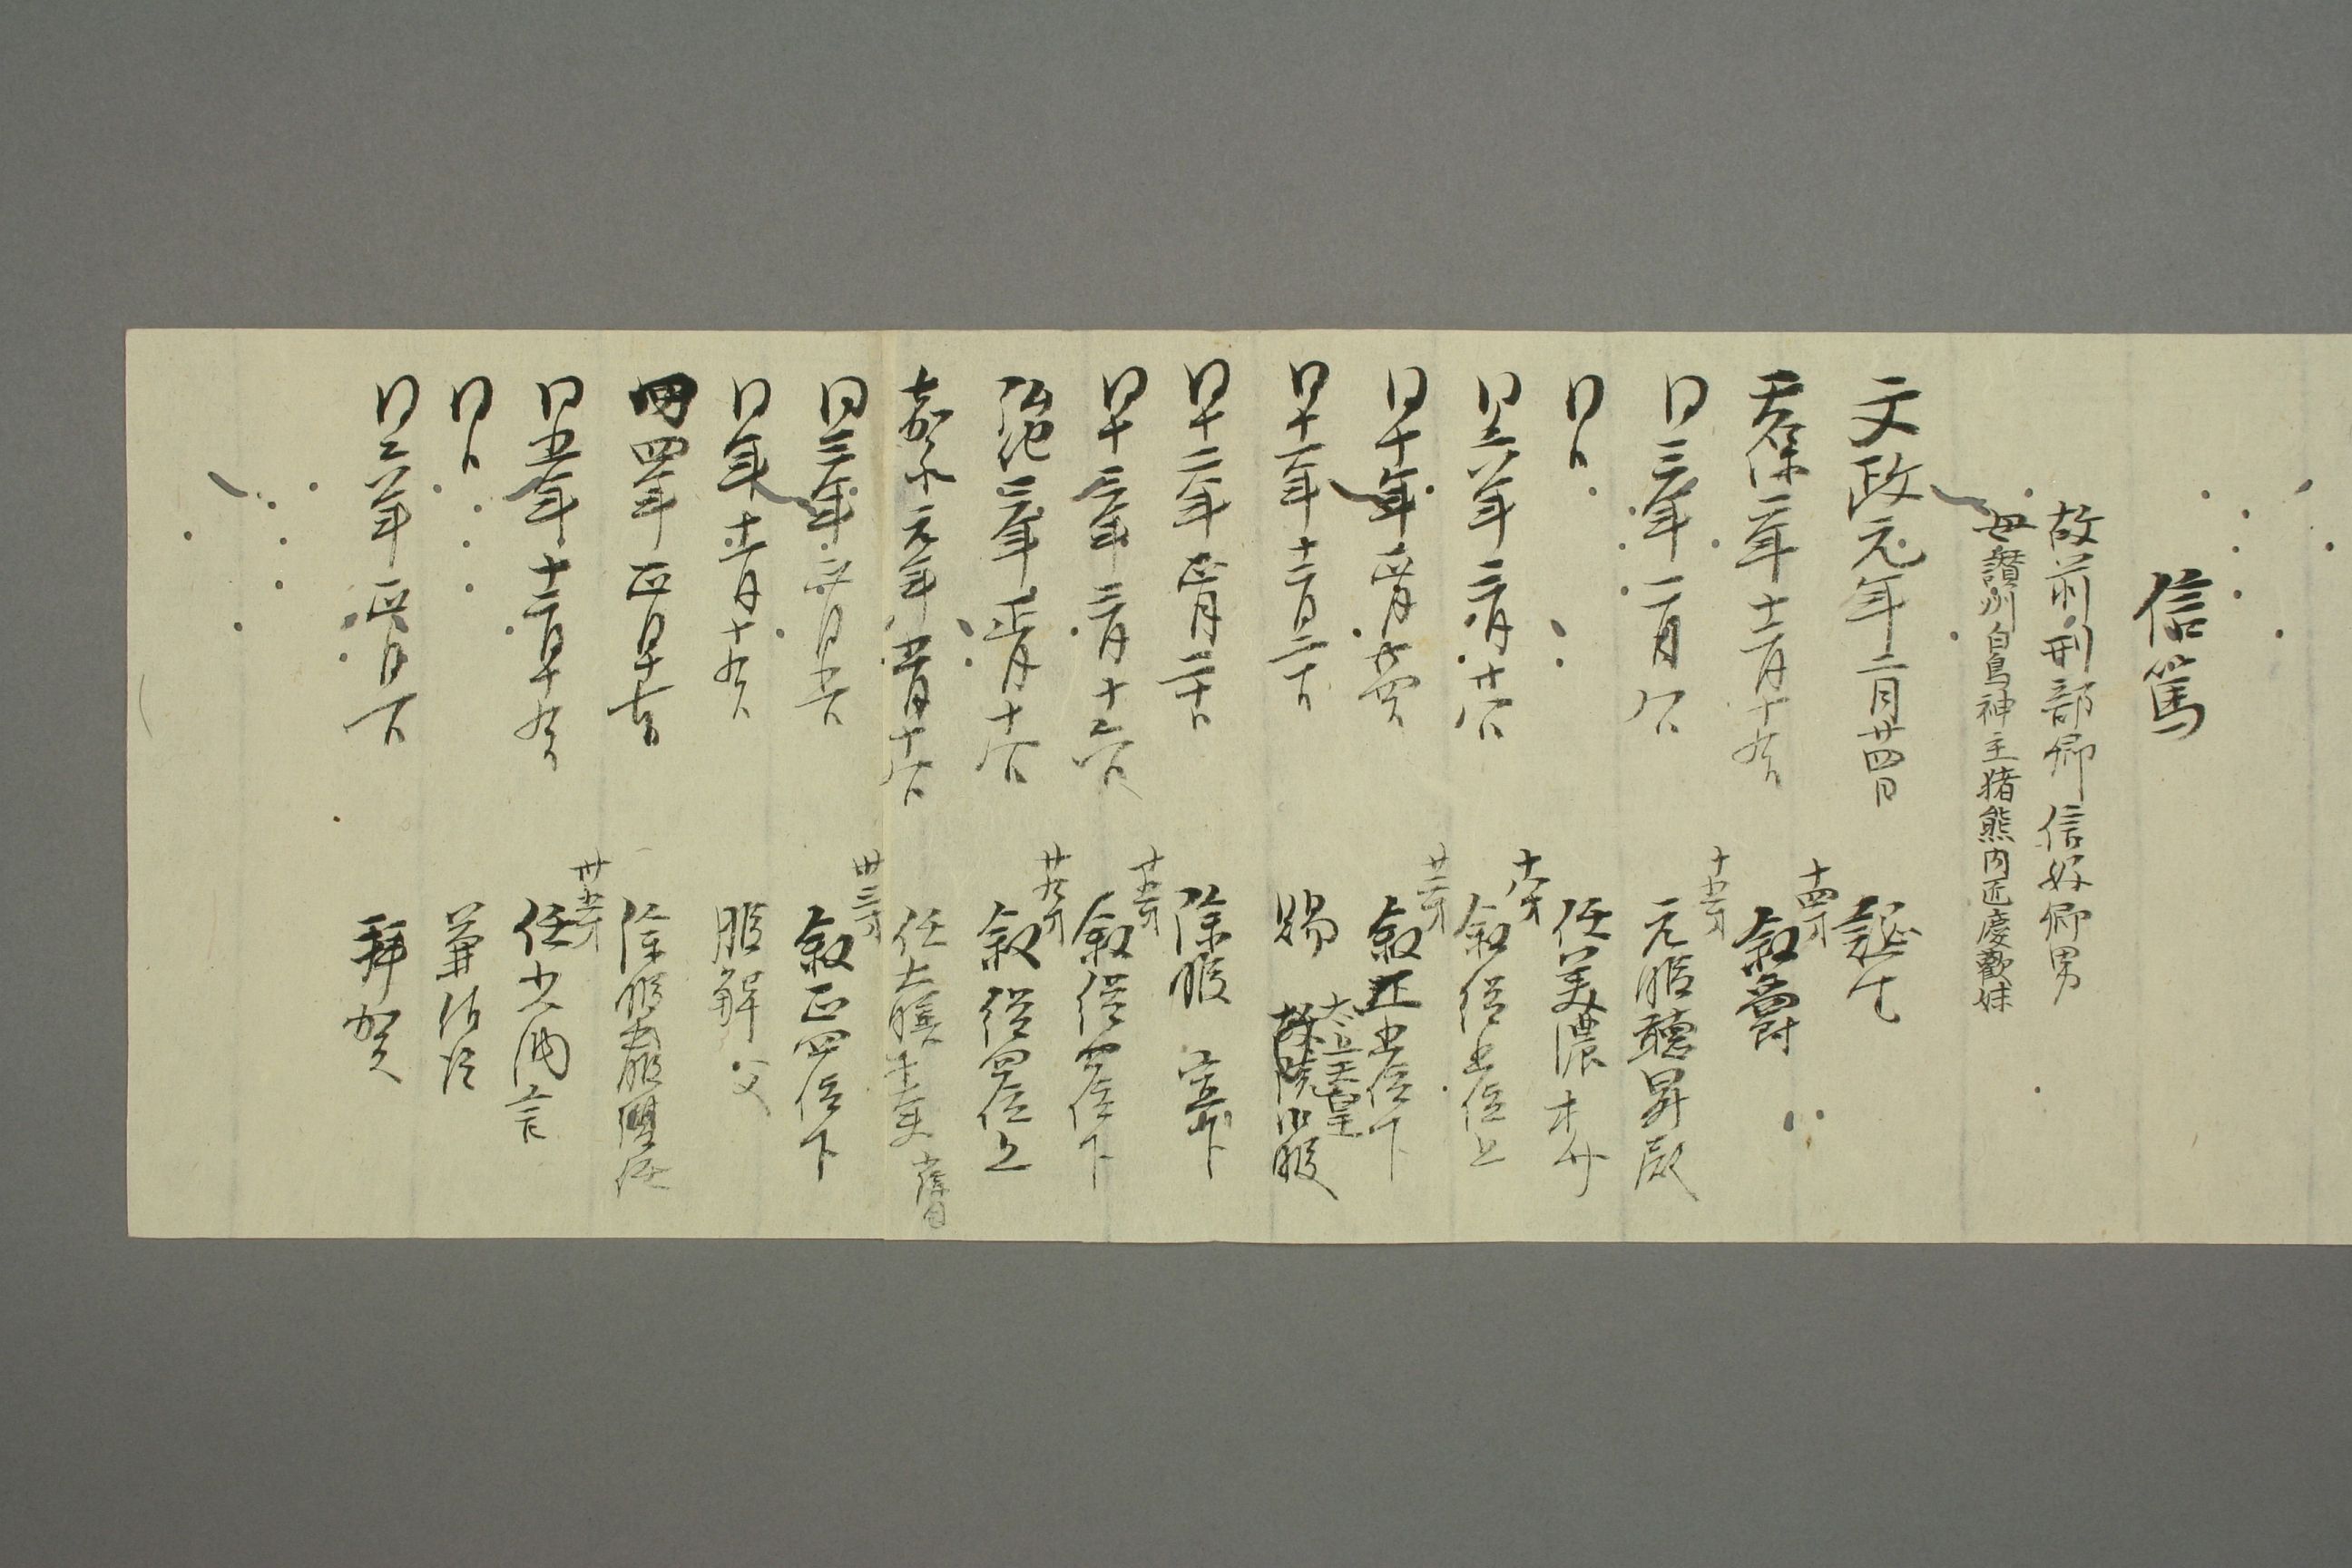 信篤
故前刑部卿信好卿男
母讃州白鳥神主猪熊内匠慶歡妹
文政元年二月廿四日 誕生
天保二年十二月十九日 十四才 叙爵
同三年二月八日 十五才 元服聽昇殿
同日 任美濃権介
同六年二月十八日 十八才 叙従五位上
同十年正月廿四日 廿二才 叙正五位下
同十一年十二月二十日 賜 太上天皇 故院御服
同十二年正月二十日 除服 宣下
同十三年二月十六日 廿五才 叙従四位下
弘化三年正月十八日 廿九才 叙従四位上
嘉永元年五月十八日 任大膳権大夫 小除目
同三年正月五日 卅三才 叙正四位下
同年十一月十九日 服解 父
同四年正月十七日 除服出仕復任
同五年十二月十九日 卅五才 任少納言
同日 兼侍従
同六年正月一日 拜賀